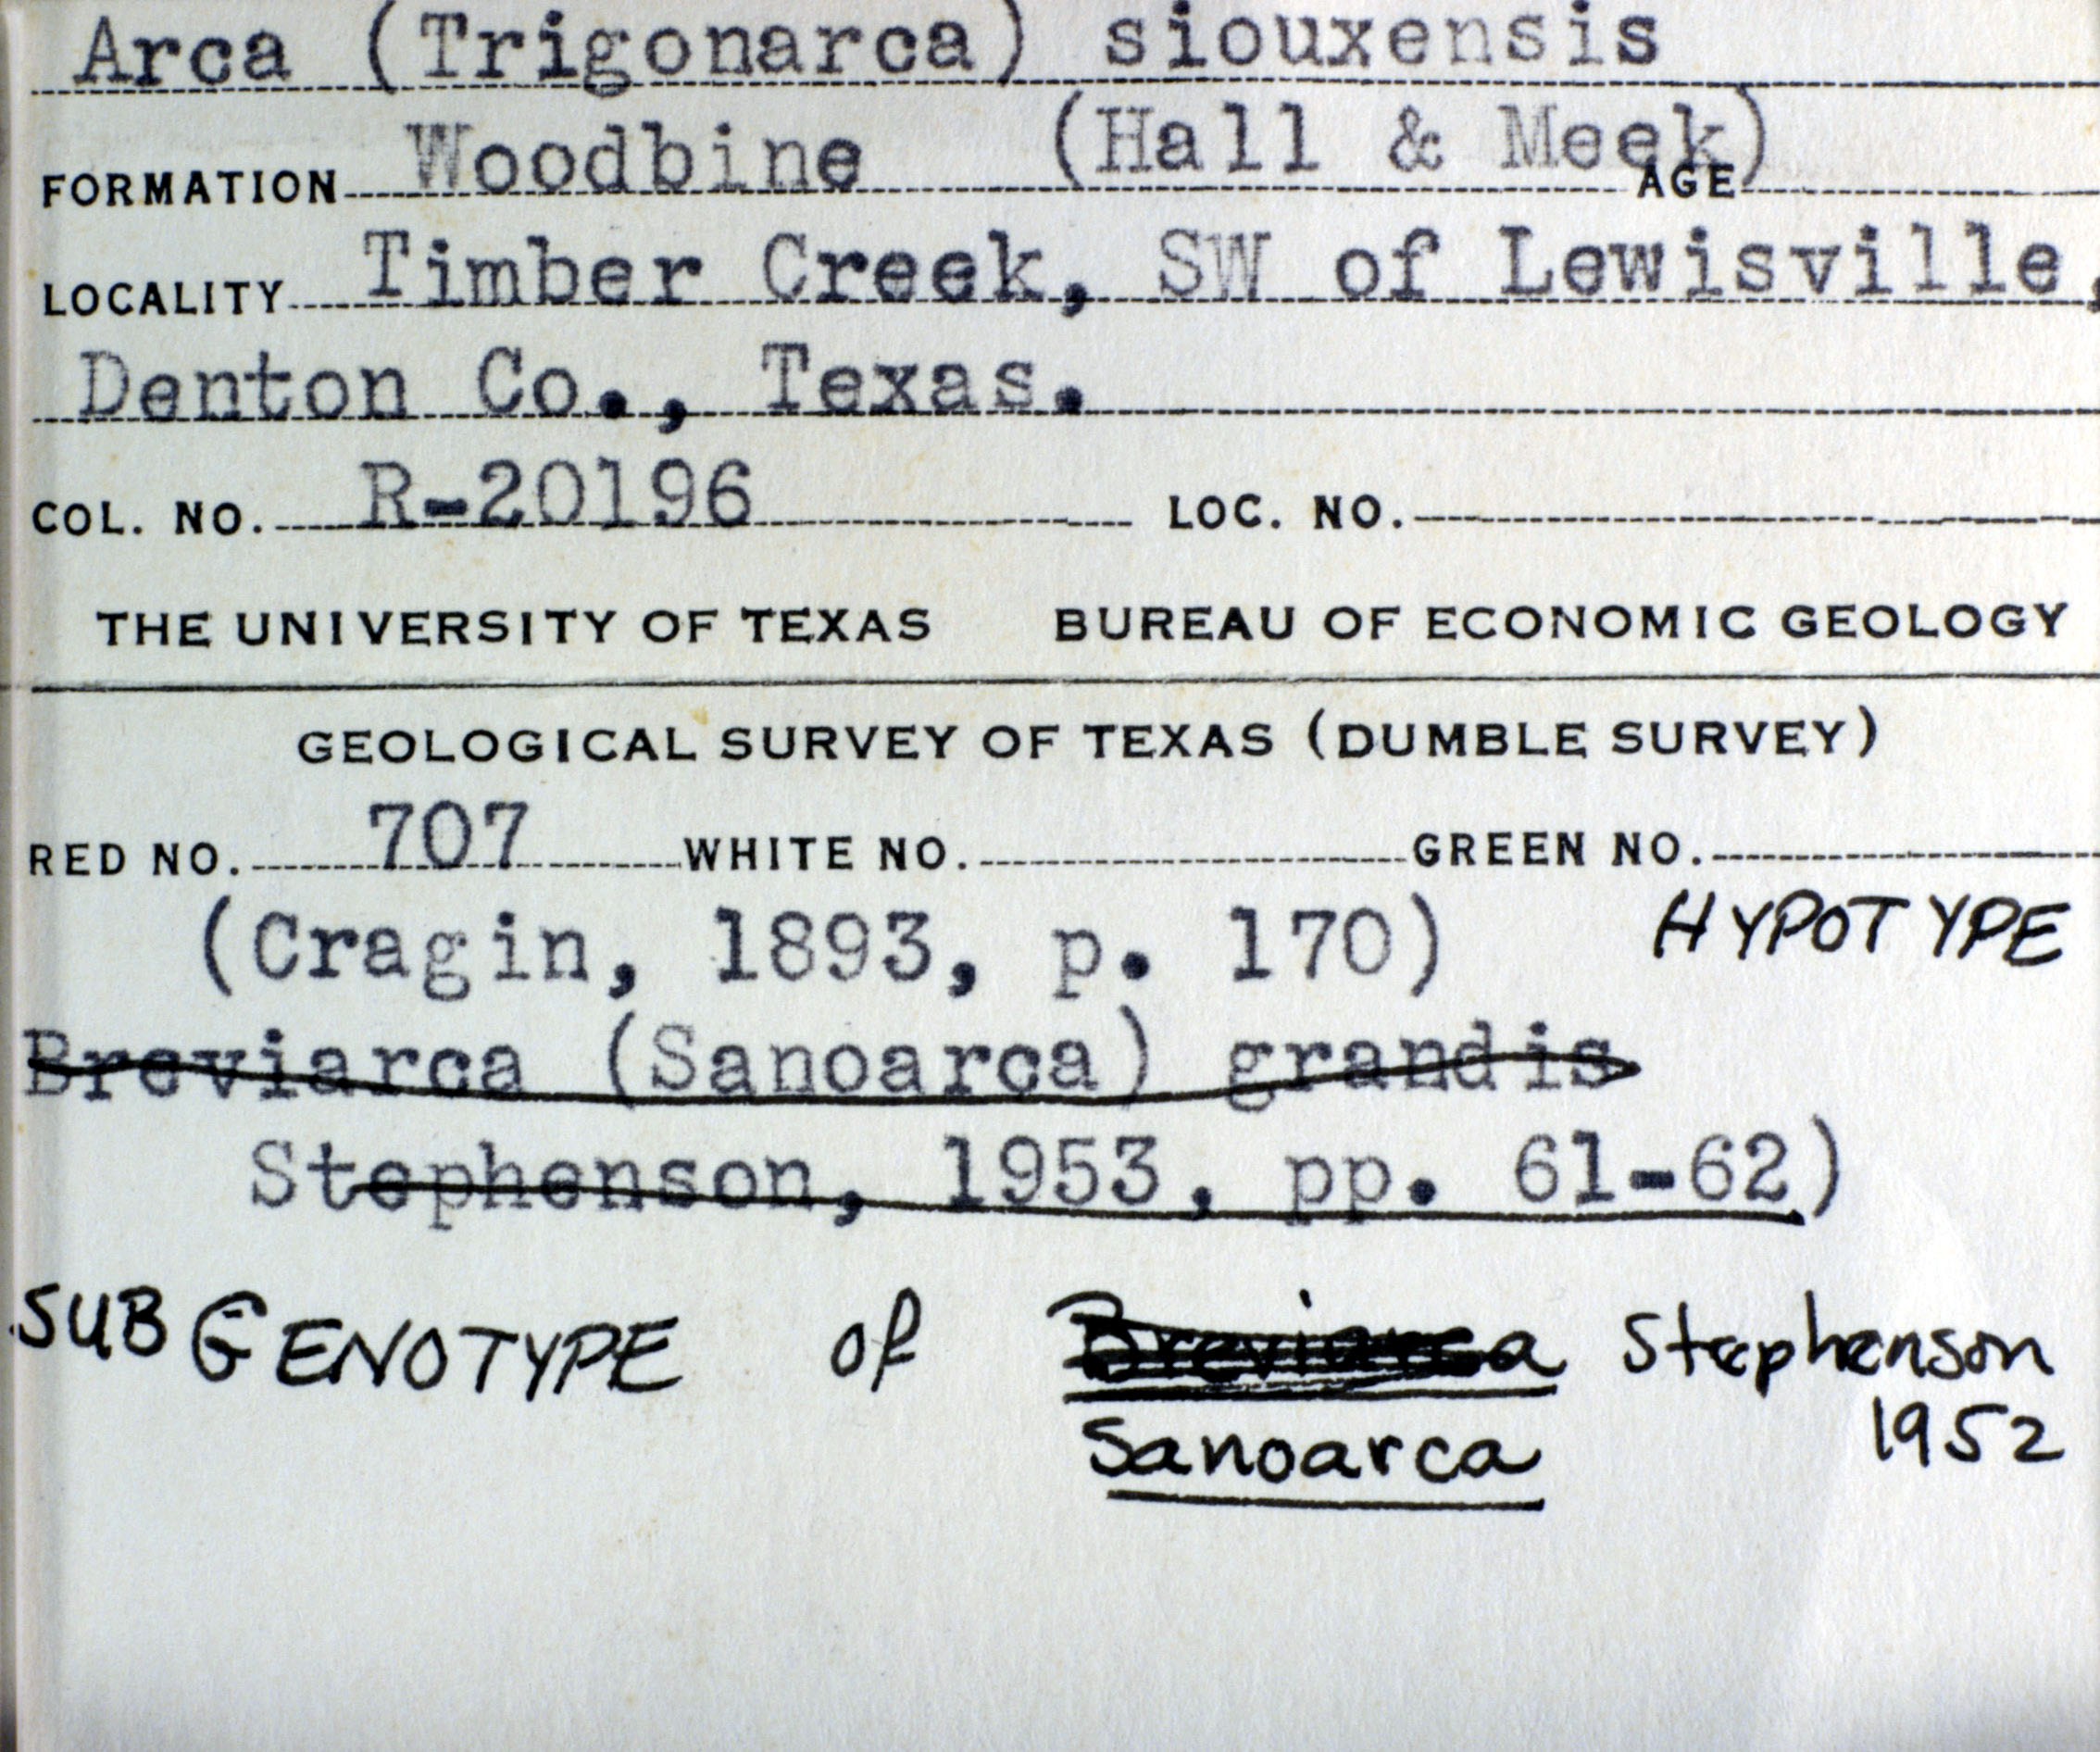 Arca (Trigonarca) siouxensis
FORMATION Woodbine (Hall & Meek) AGE
LOCALITY Timber Creek, SW of Lewisville,
Denton Co., Texas.
COL. NO. R-20196 LOC. NO.
THE UNIVERSITY OF TEXAS BUREAU OF ECONOMIC GEOLOGY
GEOLOGICAL SURVEY OF TEXAS (DUMBLE SURVEY)
RED NO. 707 WHITE NO. GREEN NO.
(Cragin, 1893, p. 170) HYPOTYPE
Breviarca (Sanoarca) grandis
Stephenson, 1953, pp. 61-62)
SUBGENOTYPE of Breviarca Stephenson
Sanoarca 1952